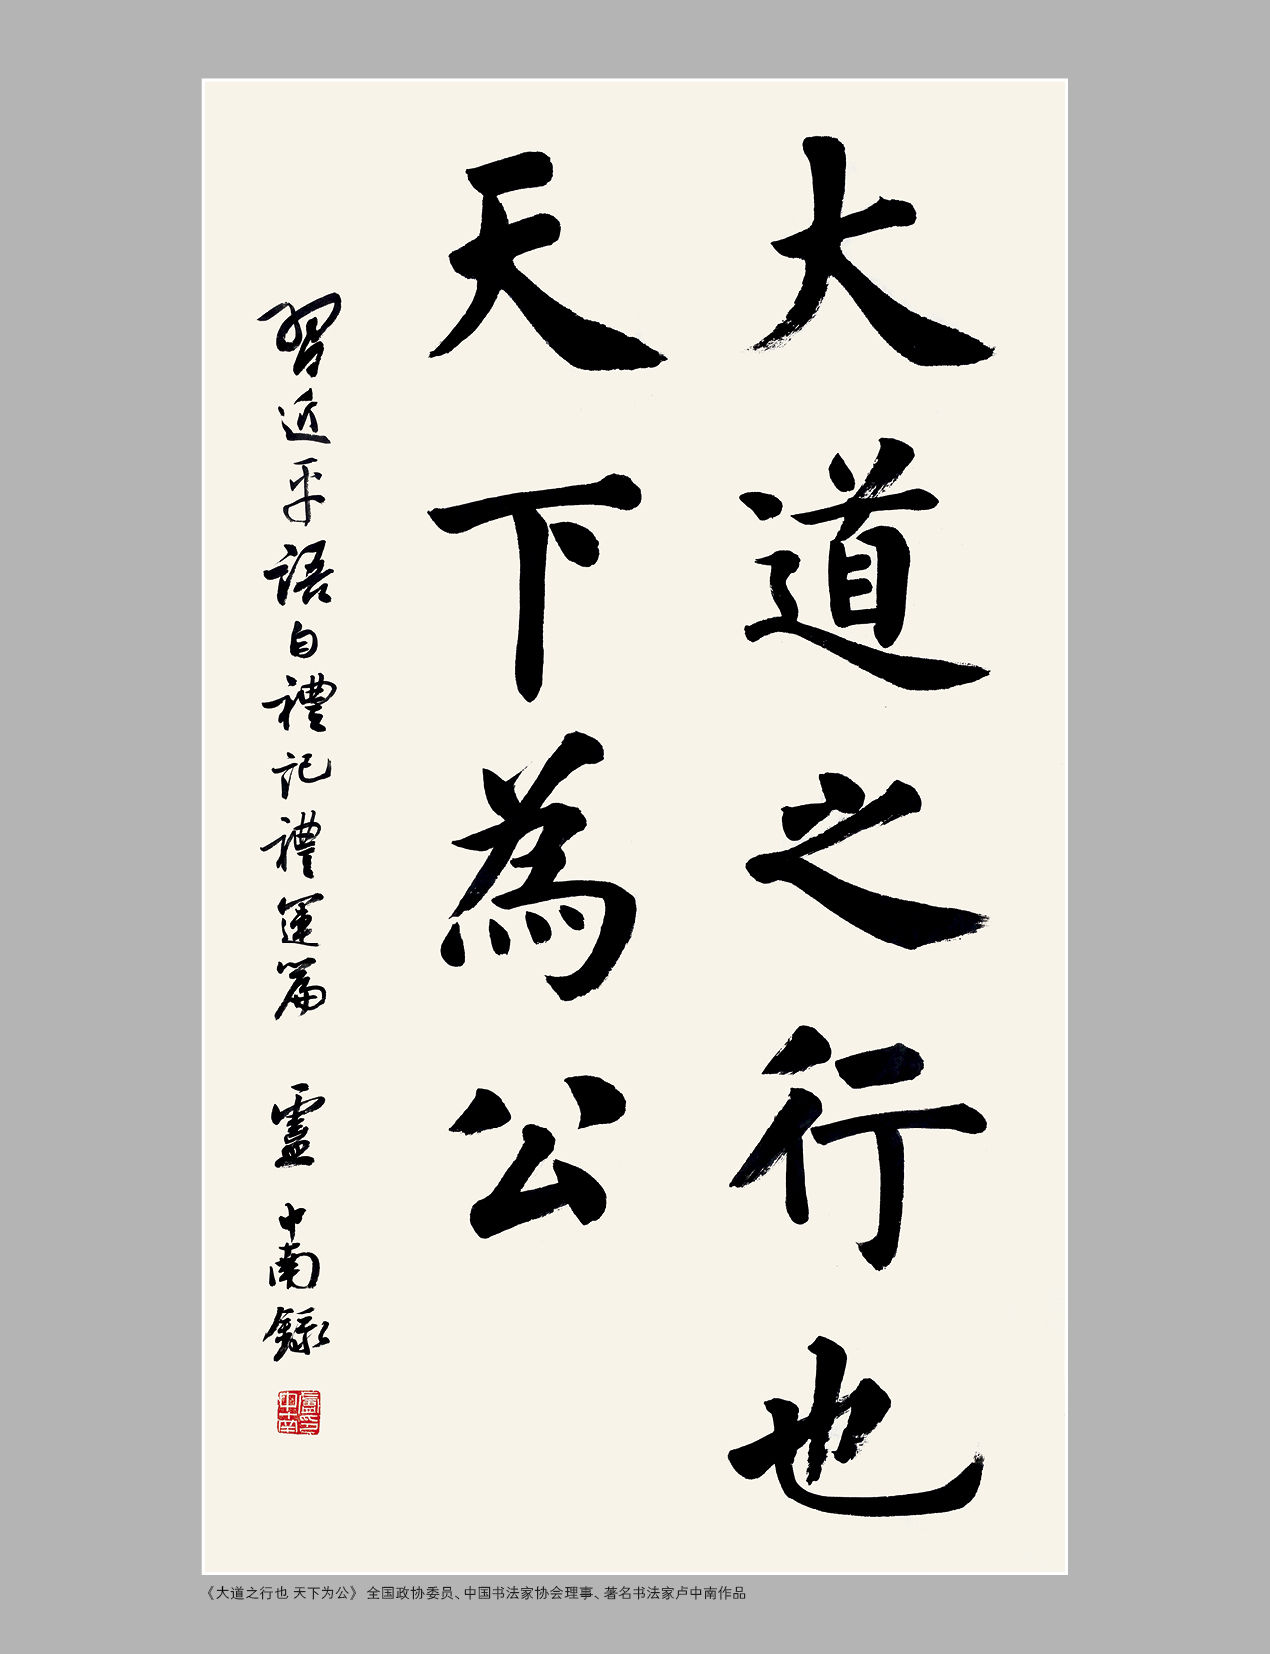 大道之行也
天下為公
習近平語自禮記禮運篇 盧中南錄
盧中南印
《大道之行也 天下为公》 全国政协委员、中国书法家协会理事、著名书法家卢中南作品